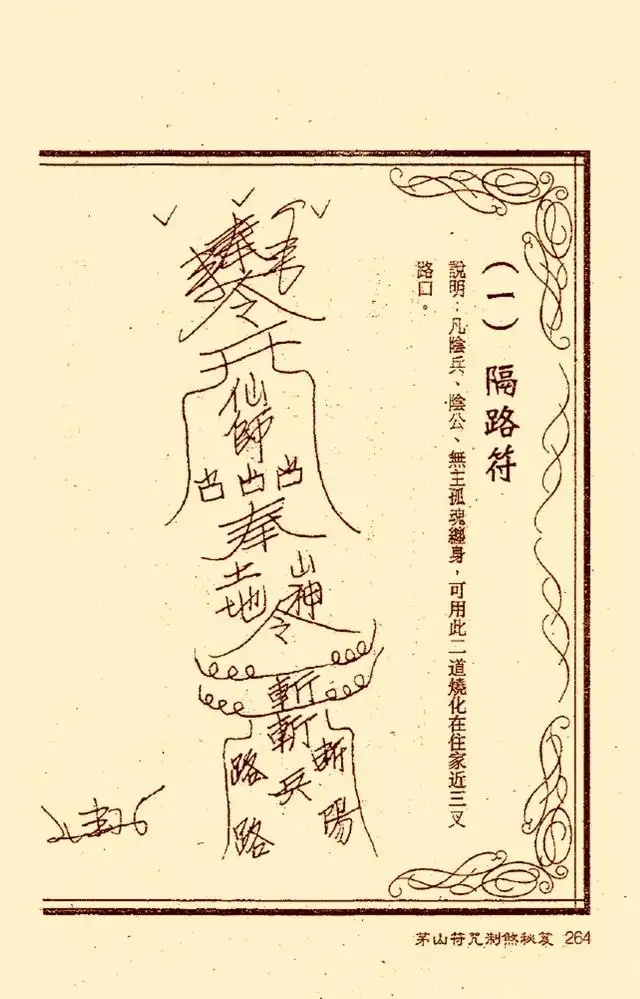 (一) 隔路符
說明：凡陰兵、陰公、無主孤魂纏身，可用此二道燒化在住家近三叉
路口。
奉
令
仙師
凸 凸 凸
奉
山神
土地
令
斬
斬 兵
斬 陽
路 路
茅山符咒制煞秘笈 264